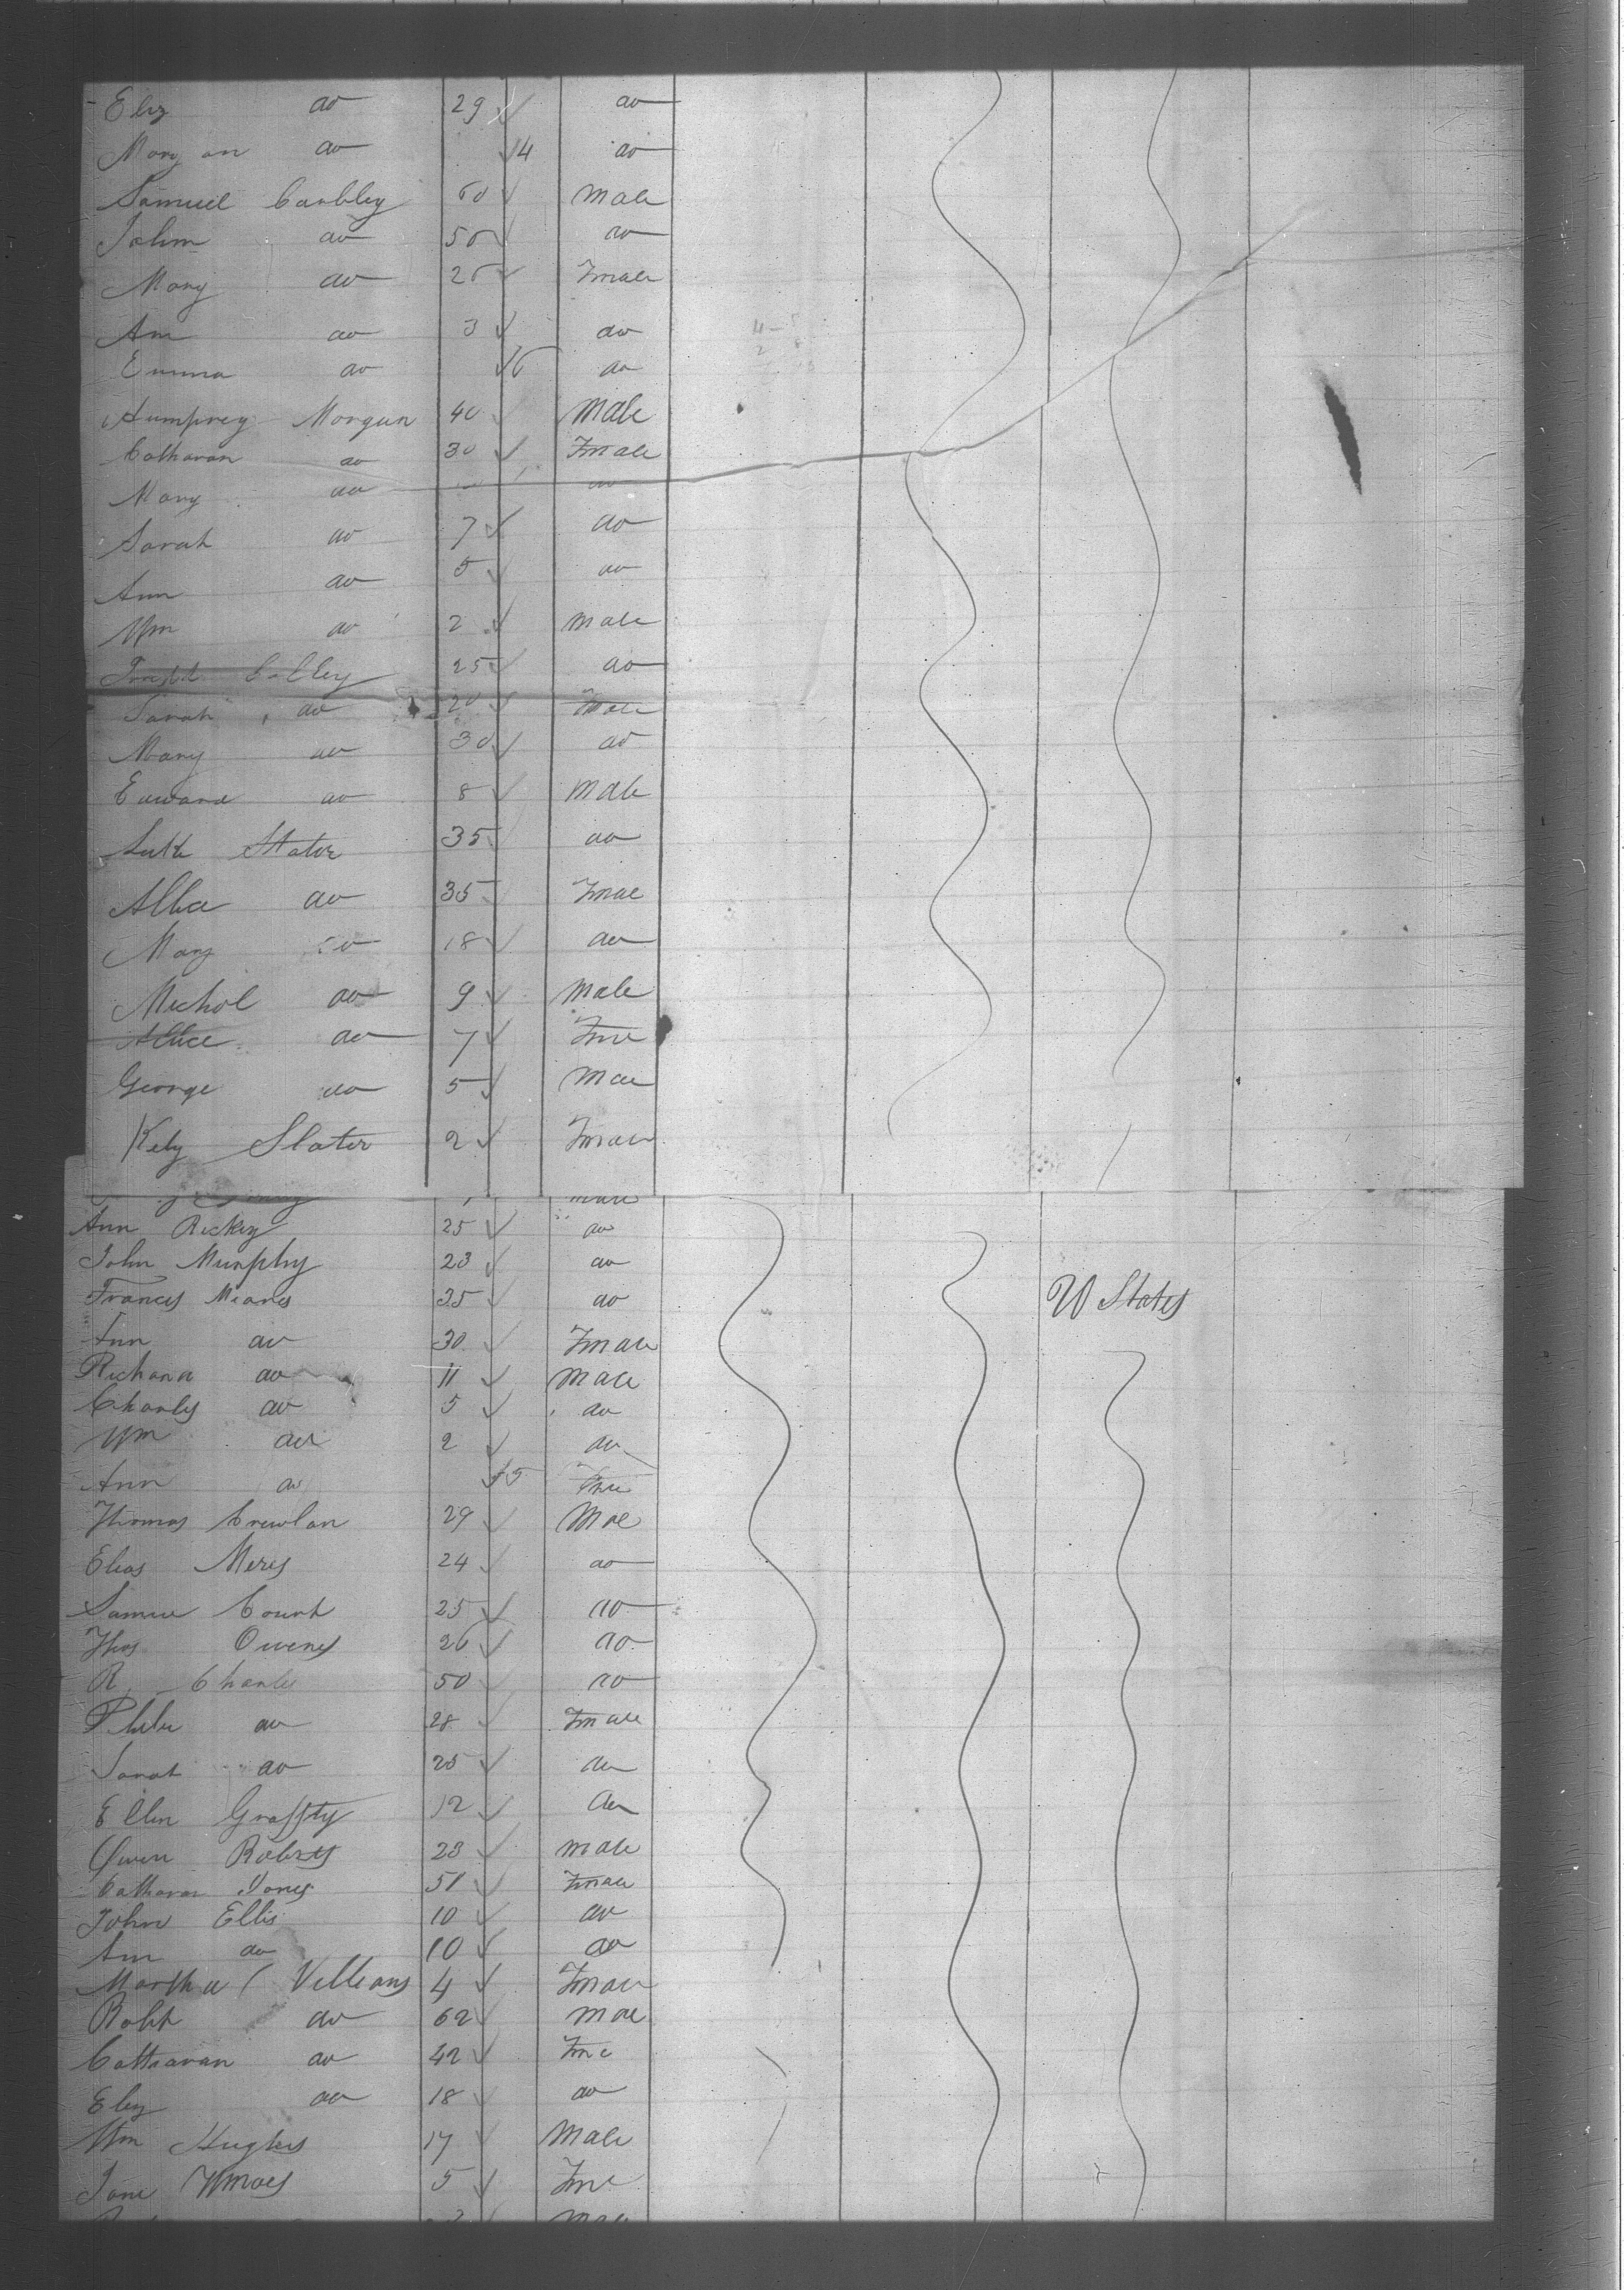 Eliz do 29 do
Mary an do 4 do
Samuel Coubley 60 Male
John do 50 do
Mary do 26 Fmale
Ann do 3 do
Emma do 6 do
Humphrey Morgan 40 Male
Catharan do 30 Fmale
Mary do do
Sarah do 7 do
Ann do 5 do
Wm do 2 Male
Colley 25 do
Sarah do 20 Fmale
Mary do 30 do
Edward do 8 Male
Slator 35 do
Allice do 35 Fmae
Mary do 18 do
Michol do 9 Male
Allice do 7 Fme
George do 5 Mae
Slator 2 Fmae
Ann Rickey 25 do
John Murphy 23 do
Francis Meanes 35 do
U States
Ann do 30 Fmale
Richard do 11 Male
Charles do 5 do
Wm do 2 do
Ann do 5 Fme
Thomas 29 Mae
Elias Meres 24 do
Samue Count 25 do
Thos Owenes 26 do
R Charles 50 do
Phebe do 28 Fmale
Sarah do 25 do
Ellen Graffty 12 do
Owen Roberts 23 Male
Catharan Jones 51 Fmae
John Ellis 10 do
Ann do 10 do
Martha Villeans 4 Fmae
Robt do 62 Mae
Catharan do 42 Fme
Eliz do 18 do
Wm Hughes 17 Male
Jane 5 Fme